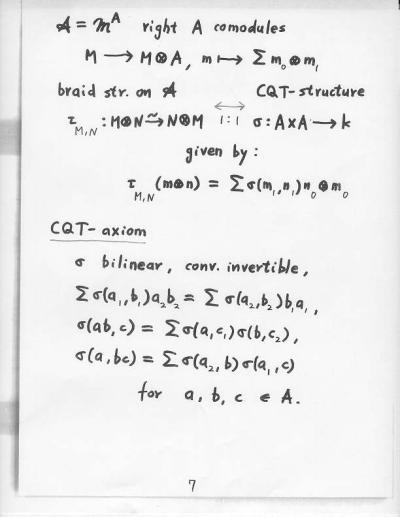 𝒜 = 𝓜^A right A comodules
M ⟶ M⊗A, m ↦ Σ m₀ ⊗ m₁
braid str. on 𝒜 ⟷ CQT-structure
τ_{M,N} : M⊗N ⥲ N⊗M 1:1 σ: A×A ⟶ k
given by:
τ_{M,N} (m⊗n) = Σ σ(m₁, n₁) n₀ ⊗ m₀
CQT-axiom
σ bilinear, conv. invertible,
Σ σ(a₁, b₁) a₂ b₂ = Σ σ(a₂, b₂) b₁ a₁ ,
σ(ab, c) = Σ σ(a, c₁) σ(b, c₂) ,
σ(a, bc) = Σ σ(a₂, b) σ(a₁, c)
for a, b, c ∈ A.
7